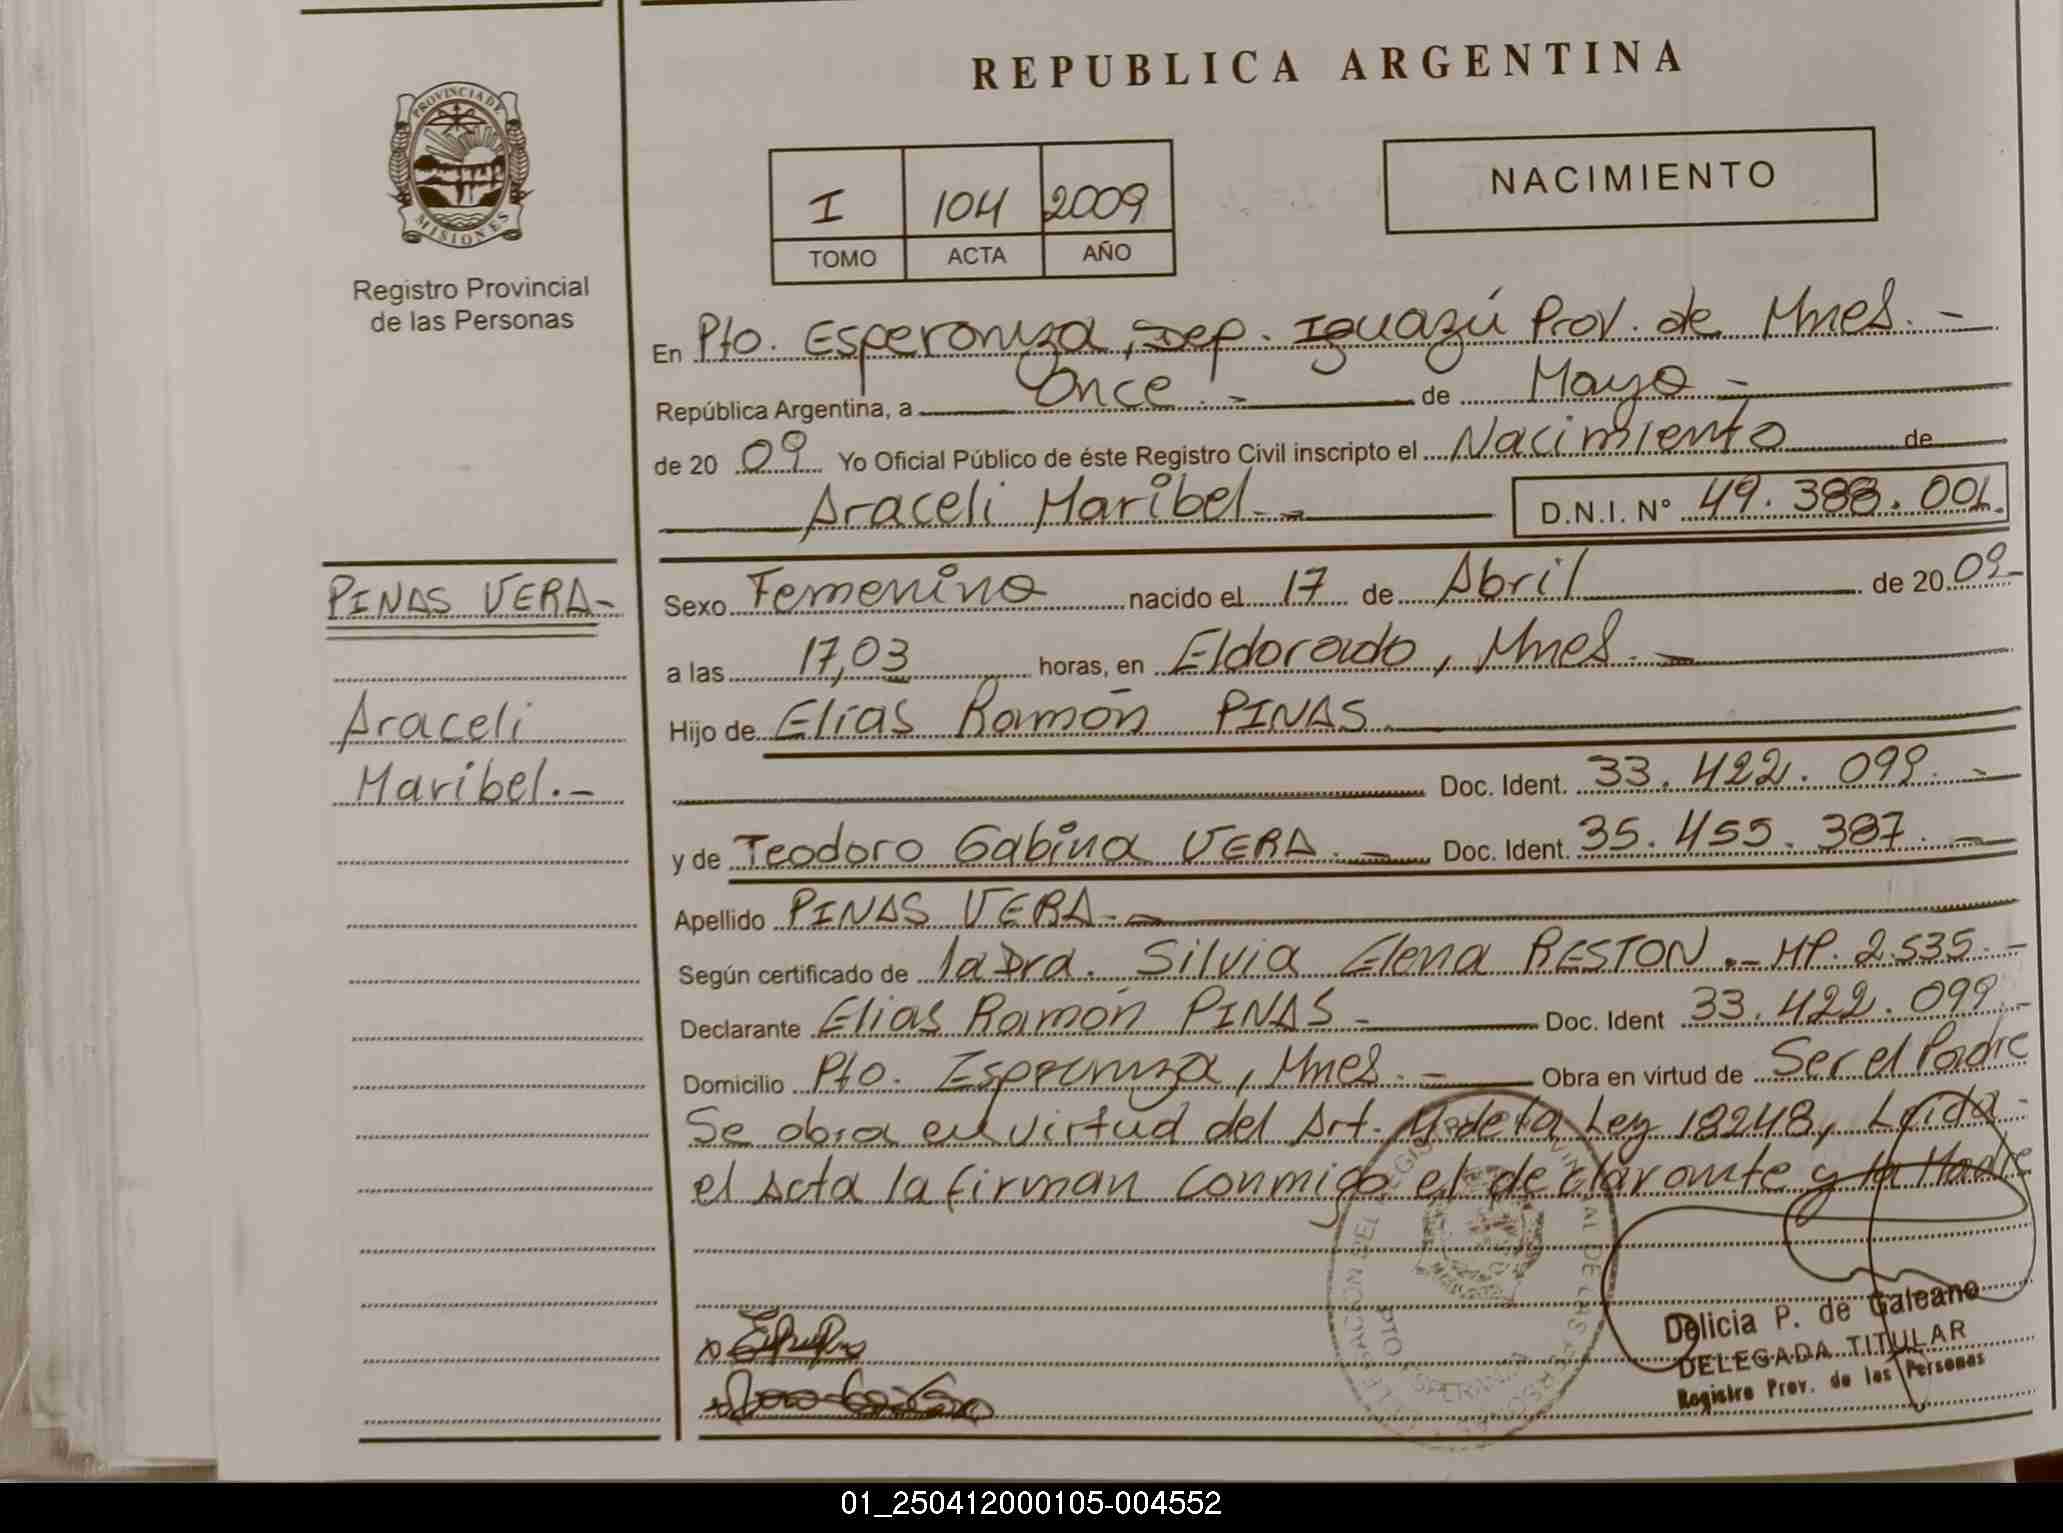 REPUBLICA ARGENTINA
PROVINCIA DE
MISIONES
Registro Provincial
de las Personas
I 104 2009
TOMO ACTA AÑO
NACIMIENTO
En Pto. Esperanza, Dep. Iguazú Prov. de Mnes. -
República Argentina, a Once. - de Mayo -
de 20 09 Yo Oficial Público de éste Registro Civil inscripto el Nacimiento de
Araceli Maribel. - D.N.I. N° 49.388.001.
PINAS VERA-
Araceli
Maribel. -
Sexo Femenino nacido el 17 de Abril de 20 09-
a las 17,03 horas, en Eldorado, Mnes. -
Hijo de Elías Ramón PINAS.
Doc. Ident. 33.422.099. -
y de Teodoro Gabina VERA. - Doc. Ident. 35.455.387. -
Apellido PINAS VERA. -
Según certificado de la Dra. Silvia Elena RESTON. - MP. 2.535. -
Declarante Elias Ramón PINAS - Doc. Ident 33.422.099. -
Domicilio Pto. Esperanza, Mnes. - Obra en virtud de Ser el Padre
Se obra en virtud del Art. de la Ley 18248, Leida
el Acta la firman conmigo el declarante y la Madre
Delicia P. de Galeano
DELEGADA TITULAR
Registro Prov. de las Personas
01_250412000105-004552